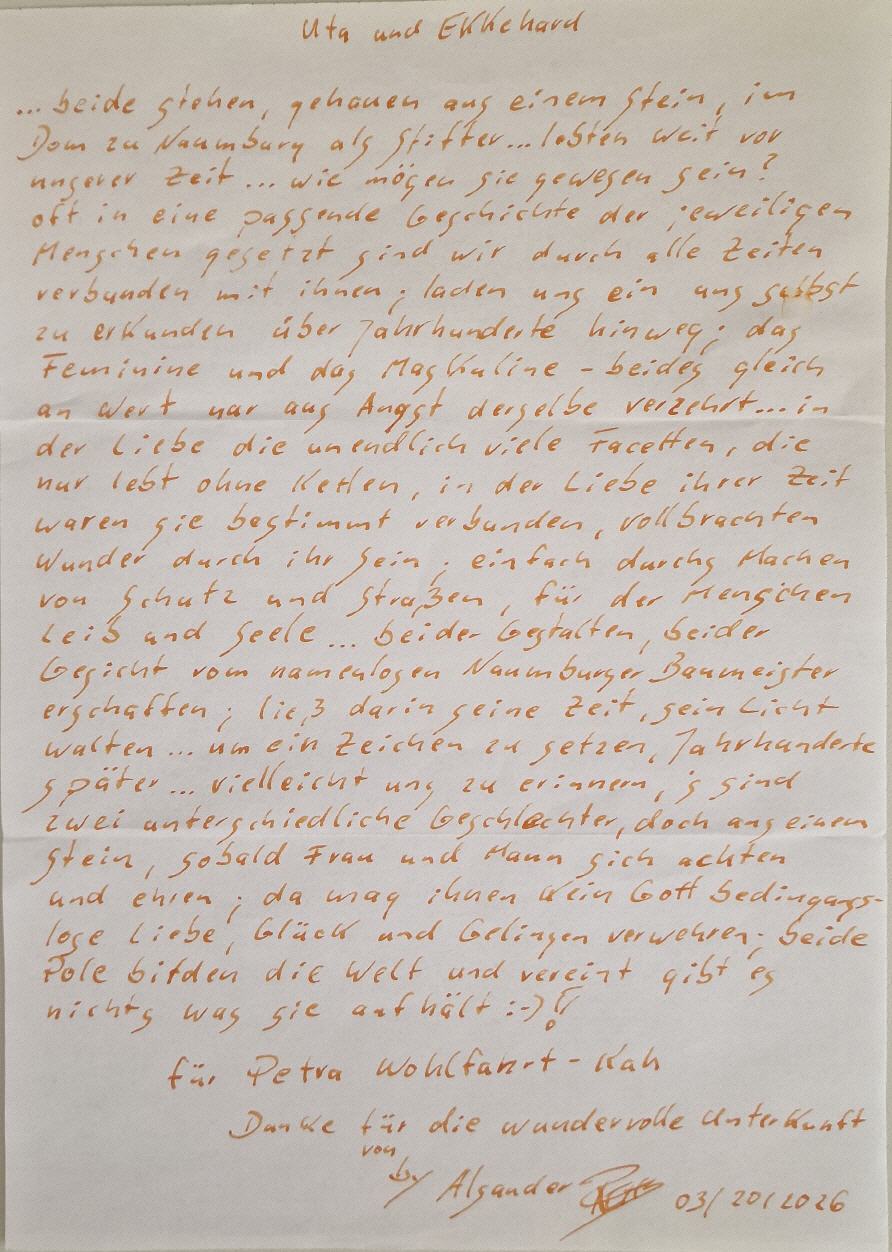 Uta und Ekkehard
... beide stehen, gehauen aus einem Stein, im
Dom zu Naumburg als Stifter... lebten weit vor
unserer Zeit... wie mögen sie gewesen sein?
oft in eine passende Geschichte der jeweiligen
Menschen gesetzt sind wir durch alle Zeiten
verbunden mit ihnen; laden uns ein uns selbst
zu erkunden über Jahrhunderte hinweg; das
Feminine und das Maskuline - beides gleich
an Wert nur aus Angst derselbe verzehrt... in
der Liebe die unendlich viele Facetten, die
nur lebt ohne Ketten, in der Liebe ihrer Zeit
waren sie bestimmt verbunden, vollbrachten
Wunder durch ihr Sein; einfach durchs Machen
von Schutz und Straßen, für der Menschen
Leib und Seele... beider Gestalten, beider
Gesicht vom namenlosen Naumburger Baumeister
erschaffen; ließ darin seine Zeit, sein Licht
walten... um ein Zeichen zu setzen, Jahrhunderte
später... vielleicht uns zu erinnern, 's sind
zwei unterschiedliche Geschlechter, doch aus einem
Stein, sobald Frau und Mann sich achten
und ehren; da mag ihnen kein Gott bedingungs-
lose Liebe, Glück und Gelingen verwehren; beide
Pole bilden die Welt und vereint gibt es
nichts was sie aufhält :-)!
für Petra Wohlfahrt-Kah
Danke für die wundervolle Unterkunft
von
by Alsander 03/20/2026